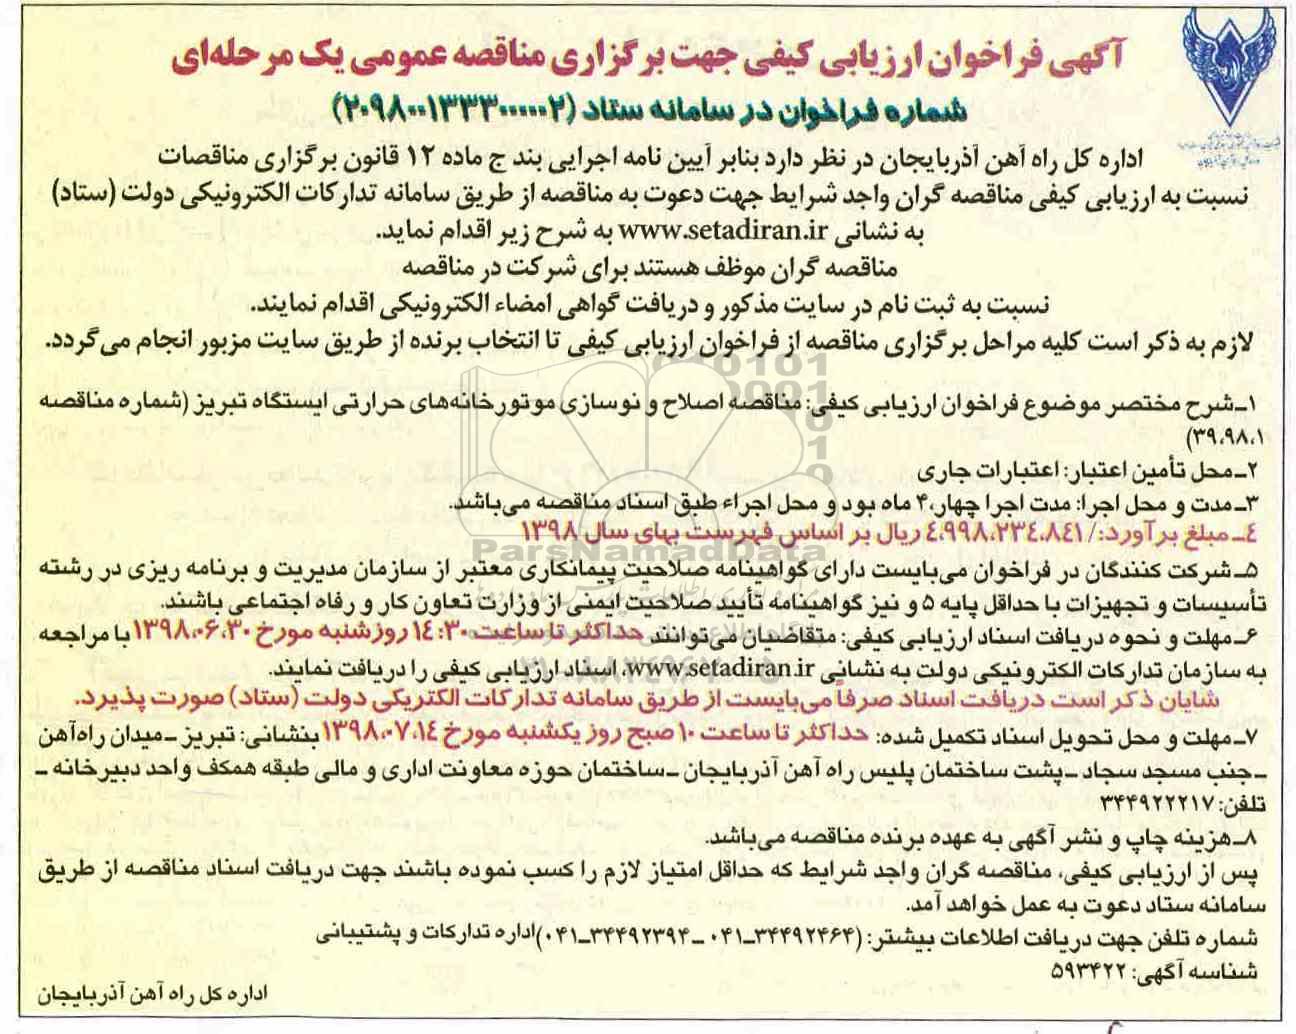 آگهی فراخوان ارزیابی کیفی جهت برگزاری مناقصه عمومی یک مرحله‌ای
شماره فراخوان در سامانه ستاد (۲۰۹۸۰۰۱۳۳۳۰۰۰۰۰۲)
اداره کل راه آهن آذربایجان در نظر دارد بنابر آیین نامه اجرایی بند ج ماده ۱۲ قانون برگزاری مناقصات
نسبت به ارزیابی کیفی مناقصه گران واجد شرایط جهت دعوت به مناقصه از طریق سامانه تدارکات الکترونیکی دولت (ستاد)
به نشانی www.setadiran.ir به شرح زیر اقدام نماید.
مناقصه گران موظف هستند برای شرکت در مناقصه
نسبت به ثبت نام در سایت مذکور و دریافت گواهی امضاء الکترونیکی اقدام نمایند.
لازم به ذکر است کلیه مراحل برگزاری مناقصه از فراخوان ارزیابی کیفی تا انتخاب برنده از طریق سایت مزبور انجام می‌گردد.
۱ـ شرح مختصر موضوع فراخوان ارزیابی کیفی: مناقصه اصلاح و نوسازی موتورخانه‌های حرارتی ایستگاه تبریز (شماره مناقصه
۳۹،۹۸،۱)
۲ـ محل تأمین اعتبار: اعتبارات جاری
۳ـ مدت و محل اجرا: مدت اجرا چهار،۴ ماه بود و محل اجراء طبق اسناد مناقصه می‌باشد.
۴ـ مبلغ برآورد:/۴،۹۹۸،۲۳٤،۸٤۱ ریال بر اساس فهرست بهای سال ۱۳۹۸
ParsNamadData
۵ـ شرکت کنندگان در فراخوان می‌بایست دارای گواهینامه صلاحیت پیمانکاری معتبر از سازمان مدیریت و برنامه ریزی در رشته
تأسیسات و تجهیزات با حداقل پایه ۵ و نیز گواهینامه تأیید صلاحیت ایمنی از وزارت تعاون کار و رفاه اجتماعی باشند.
۶ـ مهلت و نحوه دریافت اسناد ارزیابی کیفی: متقاضیان می‌توانند حداکثر تا ساعت ۱٤:۳۰ روز شنبه مورخ ۱۳۹۸،۰۶،۳۰ با مراجعه
به سازمان تدارکات الکترونیکی دولت به نشانی www.setadiran.ir، اسناد ارزیابی کیفی را دریافت نمایند.
شایان ذکر است دریافت اسناد صرفاً می‌بایست از طریق سامانه تدارکات الکتریکی دولت (ستاد) صورت پذیرد.
۷ـ مهلت و محل تحویل اسناد تکمیل شده: حداکثر تا ساعت ۱۰ صبح روز یکشنبه مورخ ۱۳۹۸،۰۷،۱٤ بنشانی: تبریز ـ میدان راه‌آهن
ـ جنب مسجد سجاد ـ پشت ساختمان پلیس راه آهن آذربایجان ـ ساختمان حوزه معاونت اداری و مالی طبقه همکف واحد دبیرخانه ـ
تلفن: ۳۴۴۹۲۲۲۱۷
۸ـ هزینه چاپ و نشر آگهی به عهده برنده مناقصه می‌باشد.
پس از ارزیابی کیفی، مناقصه گران واجد شرایط که حداقل امتیاز لازم را کسب نموده باشند جهت دریافت اسناد مناقصه از طریق
سامانه ستاد دعوت به عمل خواهد آمد.
شماره تلفن جهت دریافت اطلاعات بیشتر: (۳۴۴۹۲۴۶۴ـ۰۴۱ ـ ۳۴۴۹۲۳۹۴ـ۰۴۱) اداره تدارکات و پشتیبانی
شناسه آگهی: ۵۹۳۴۲۲
اداره کل راه آهن آذربایجان